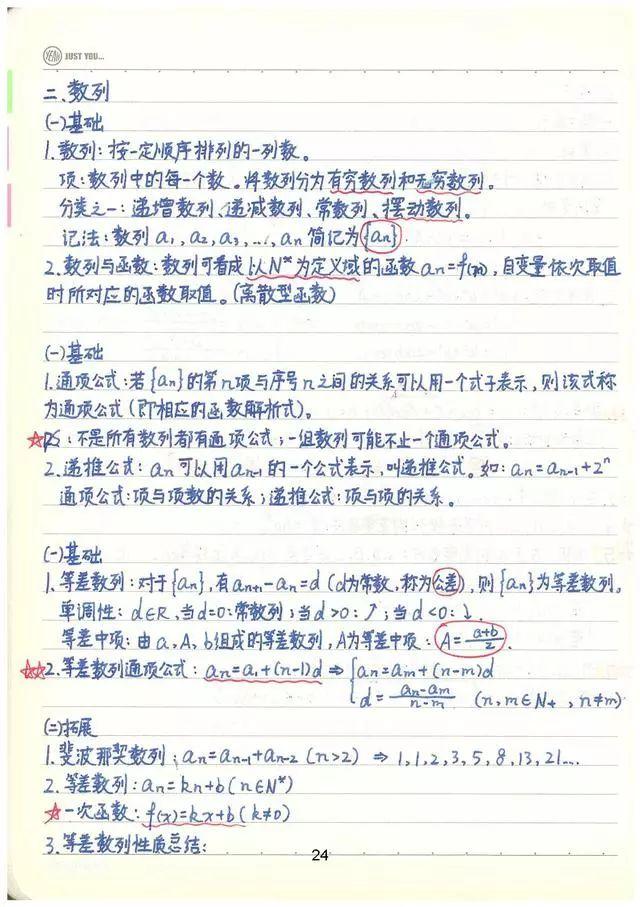 YEAH JUST YOU...
二、数列
(一)基础
1.数列：按一定顺序排列的一列数。
项：数列中的每一个数。将数列分为有穷数列和无穷数列。
分类之一：递增数列、递减数列、常数列、摆动数列。
记法：数列a₁，a₂，a₃，…，aₙ 简记为{aₙ}
2.数列与函数：数列可看成以N*为定义域的函数aₙ=f(n)，自变量依次取值
时所对应的函数取值。(离散型函数)
(一)基础
1.通项公式：若{aₙ}的第n项与序号n之间的关系可以用一个式子表示，则该式称
为通项公式(即相应的函数解析式)。
☆PS：不是所有数列都有通项公式；一组数列可能不止一个通项公式。
2.递推公式：aₙ可以用aₙ₋₁的一个公式表示，叫递推公式。如：aₙ=aₙ₋₁+2ⁿ
通项公式：项与项数的关系；递推公式：项与项的关系。
(一)基础
1.等差数列：对于{aₙ}，有aₙ₊₁-aₙ=d(d为常数，称为公差)，则{aₙ}为等差数列。
单调性：d∈R，当d=0：常数列；当d>0：↗；当d<0：↓.
等差中项：由a，A，b组成的等差数列，A为等差中项：A=(a+b)/2.
☆☆2.等差数列通项公式：aₙ=a₁+(n-1)d ⇒ {aₙ=aₘ+(n-m)d
d=(aₙ-aₘ)/(n-m) (n,m∈N₊，n≠m)
(二)拓展
1.斐波那契数列：aₙ=aₙ₋₁+aₙ₋₂(n>2) ⇒ 1,1,2,3,5,8,13,21...
2.等差数列：aₙ=kn+b(n∈N*)
☆一次函数：f(x)=kx+b(k≠0)
3.等差数列性质总结：
24